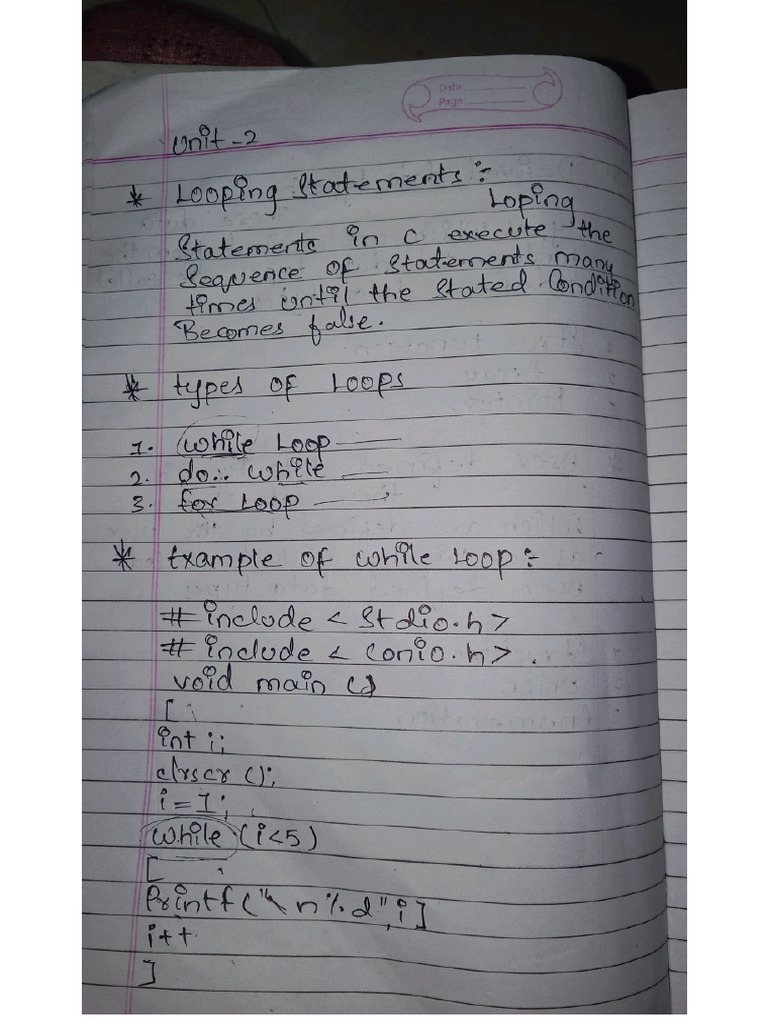 Date
Page
Unit - 2
* Looping Statements :-
Loping
Statements in C execute the
Sequence of Statements many
times until the Stated Condition
Becomes false.
* types of Loops
1. While Loop
2. do.. while
3. for Loop
* Example of While Loop :-
# include < Stdio.h >
# include < Conio.h > .
void main ()
[
int i;
clrscr ();
i = 1;
While (i<5)
[
Printf ("\n%d",i]
i++
]